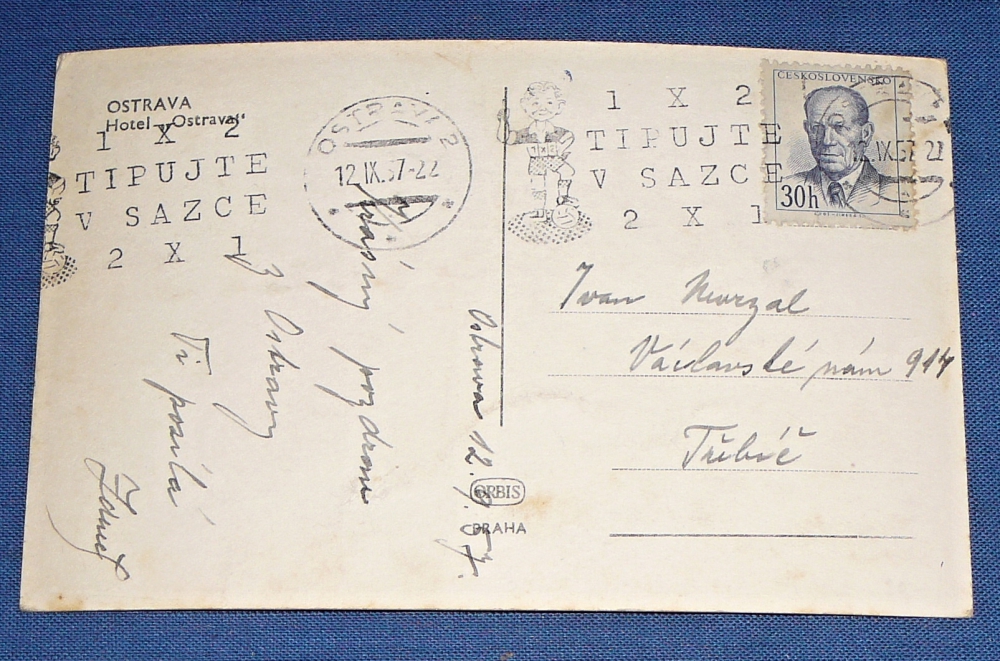 OSTRAVA
Hotel „Ostrava“
1 X 2
TIPUJTE
V SAZCE
2 X 1
OSTRAVA 2
12.IX.57-22
1 X 2
TIPUJTE
V SAZCE
2 X 1
ČESKOSLOVENSKO
30h
12.IX.57-22
Ostrava 12.9.57.
pozdrav
z Ostravy
Ti posílá
Ivan
Václavské nám 914
Třebíč
ORBIS
PRAHA